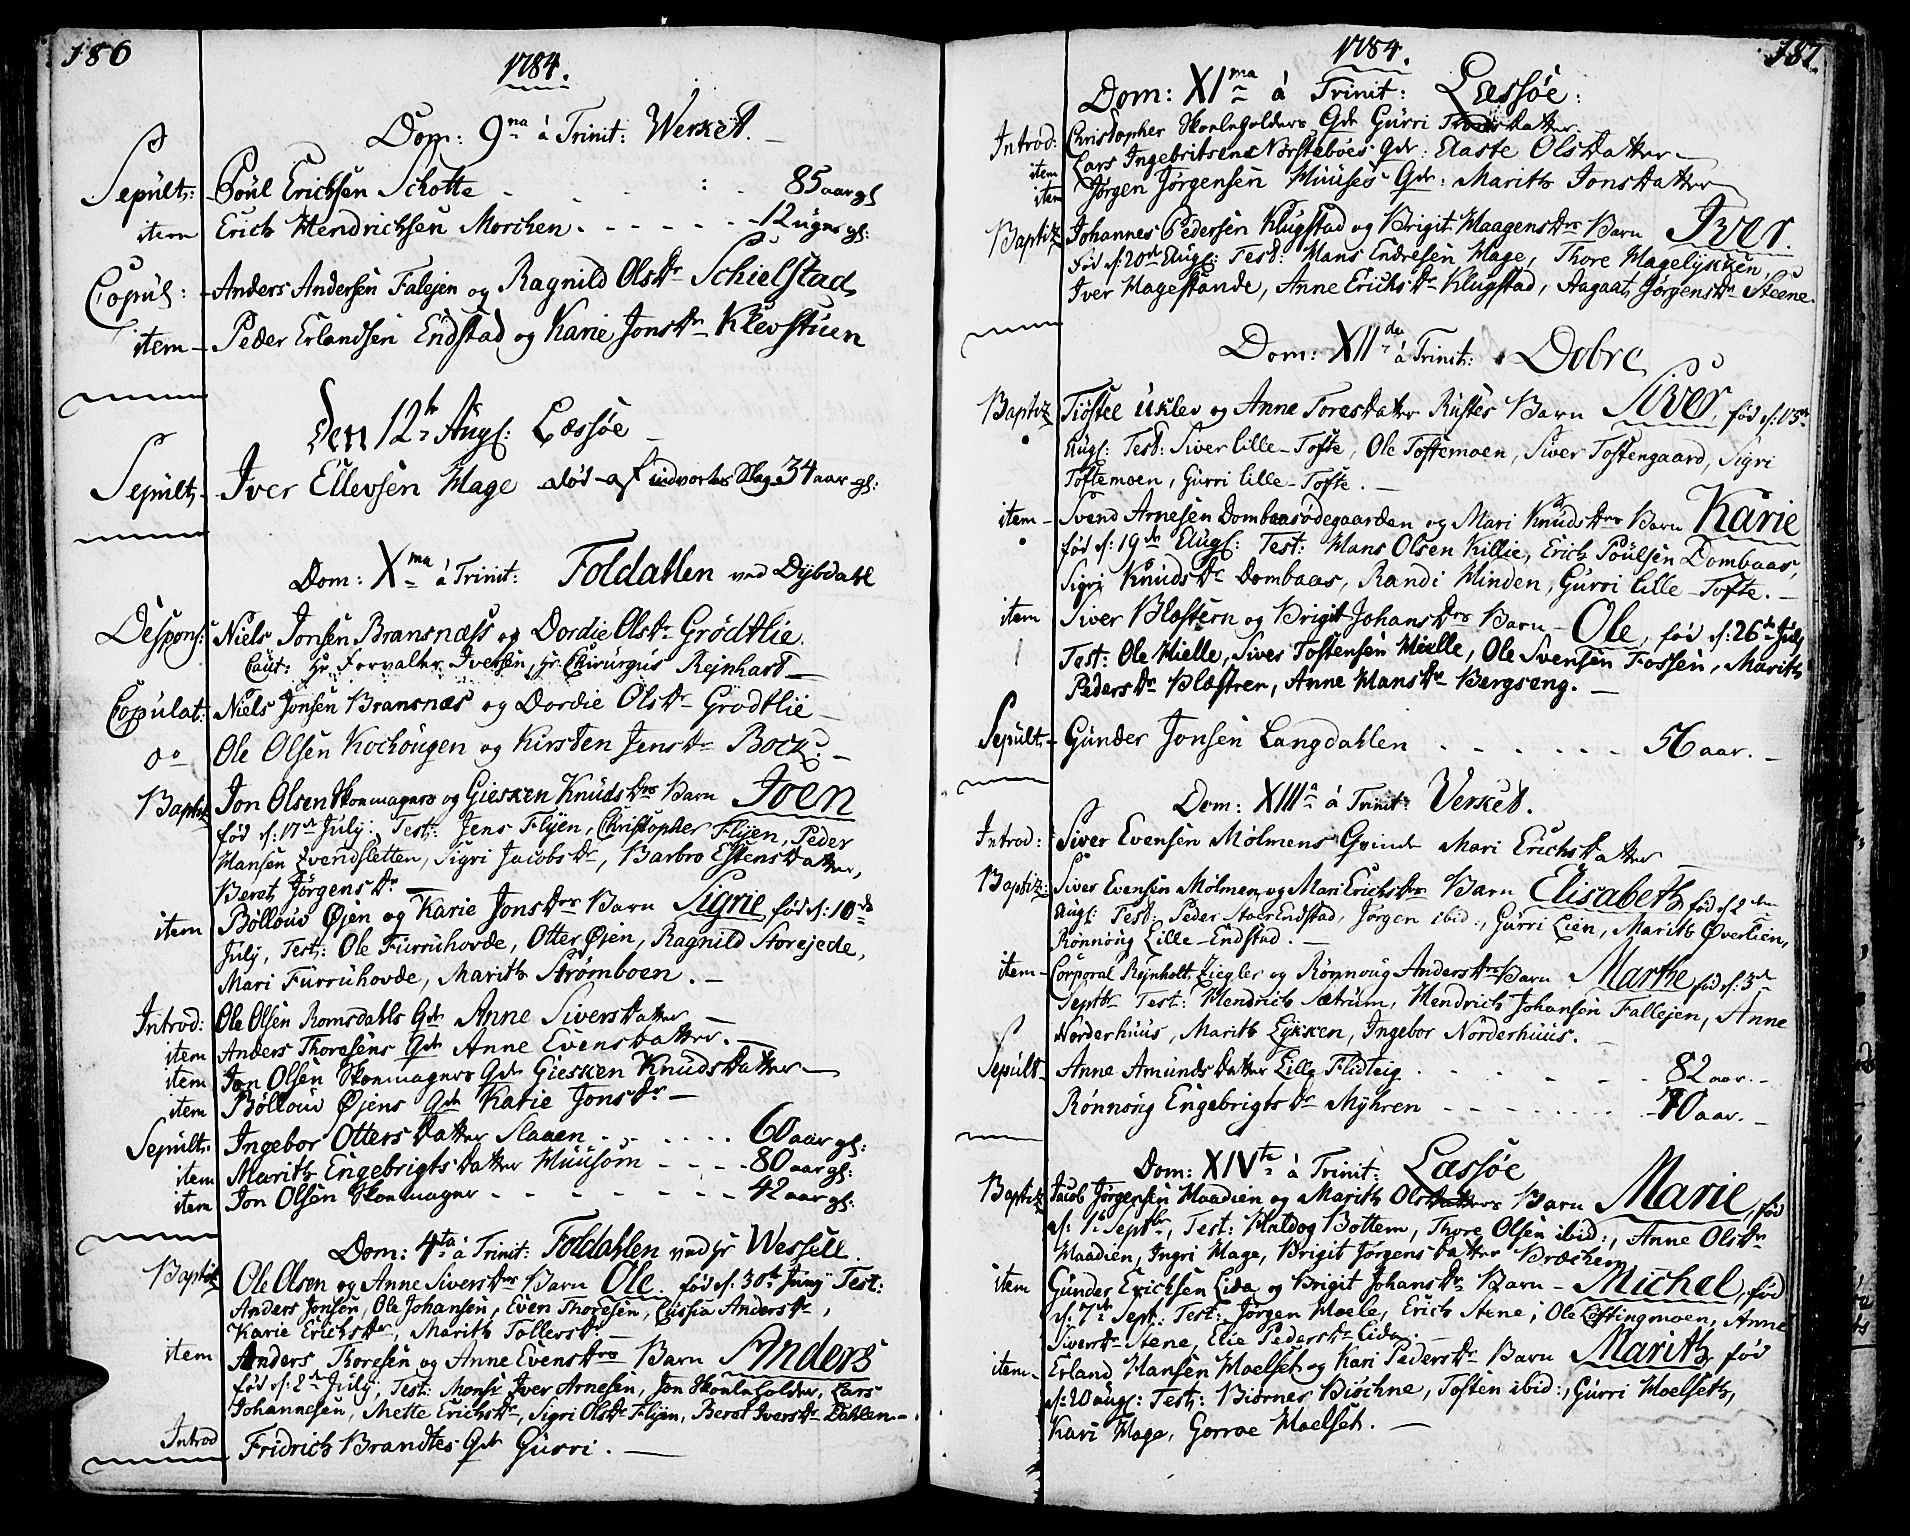 186
1784.
Dom: 9na à Trinit: Werket.
Sepult: Poul Erichsen Schotte - - : - 85 aar gl
item Erich Hendrichsen Morchen - - - - - - 12 uger gl:
Copul: Anders Andersen Falejen og Ragnild Olsdr Schielstad
item Peder Erlandsen Endstad og Karie Jonsdr Klevstuen
Den 12te Aug: Læssøe
Sepult. Iver Ellevsen Hage død af indvortes Slag 34 aar gl:
Dom: Xma à Trinit: Foldahlen ved Dybdahl
Despons: Niels Jonsen Bransnæss og Dordie Olsdr Grödtlie.
Caut: Hr Forvalter Iversen, Hr Chirurgus Rejnhart
Copulat: Niels Jonsen Bransnæs og Dordie Olsdr Grodtlie
do Ole Olsen Kochougen og Kirsten Jensdr Bock.
Baptiz Jon Olsen Skomagers og Giesken Knudsdrs Barn Joen
fød d: 17de July: Test: Jens Flyen, Christopher Flyen, Peder
Hansen Evensletten, Sigri Jacobsdr, Barbro Estensdatter,
Beret Jørgensdr
item Böllouv Øjen og Karie Jonsdrs Barn Sigrie fød d: 10de
July, Test: Ole Furruhovde, Otter Øjen, Ragnild Storejede,
Mari Furruhovde, Marith Strømboen. -
Introd: Ole Olsen Romsdahls Qde Anne Siversdatter
item Anders Thoresens Qde Anne Evensdatter. -
item Jon Olsen Skomagers Qde Giesken Knudsdatter
item Böllouv Øjens Qde Karie Jonsdr -
Sepult. Ingebor Ottersdatter Slaaen - - - - - - 60 aar gl:
item Marith Engebrigtsdatter Huusom - - - - 80 aar gl:
item Jon Olsen Skomager - - - - - - - 42 aar gl:
Dom: 4ta à Trinit: Foldahlen ved Hr Wessell.
Baptiz Ole Olsen og Anne Siversdrs Barn Ole fød d: 30te Juny Test:
Anders Jonsen, Ole Johansen, Even Thoresen, Lussia Andersdr,
Karie Erichsdr, Marith Tollersdr
item Anders Thoresen og Anne Evensdrs Barn Anders
fød d: 2de July, Test: Monsr Iver Arnesen, Jon Skouleholder, Lars
Johannesen, Mette Erichsdr, Sigri Olsdr Flyen, Beret Iversdr Dahlen - .
Introd Fridrich Brandtes Qde Gurri. -
187.
1784.
Dom: XIma à Trinit: Læssøe:
Introd: Christopher Skouleholders Qde Gurri datter
item Lars Ingebritsens Norsteböes Qde: Aaste Olsdatter
item Jørgen Jørgensen Muuses Qde: Marith Jonsdatter
Baptiz Johannes Pedersen Klugstad og Brigit Haagensdrs Barn Iver.
Fød d: 20de Aug: Test: Hans Endresen Hage, Thore Hagelykken,
Iver Hagestande, Anne Erichsdr Klugstad, Aagaat Jørgensdr Steene.
Dom: XIIda à Trinit: Dobre
Baptiz Tiöstel Uklev og Anne Toresdatter Rustes Barn Siver, fød d: 15de
Aug: Test: Siver lille-Tofte, Ole Toftemoen, Siver Toftengaard, Sigri
Toftemoen, Gurri lille-Tofte. -
item Svend Arnesen Dombaasødegaarden og Mari Knudsdrs Barn Karie
fød d: 19de Aug: Test: Hans Olsen Killie, Erich Poulsen Dombaas,
Sigri Knudsdr Dombaas, Randi Hinden, Gurri lille Tofte. -
item Siver Blæstern og Brigit Johansdrs Barn - Ole, fød d: 26de July
Test: Ole Hielle, Siver Tostensen Hielle, Ole Svensen Fossen, Marith
Pedersdr Blæstrer, Anne Hansdr Bergseng. -
Sepult. Gunder Jonsen Langdahlen - - - - - - 56 aar. -
Dom: XIIIa à Trinit: Verket.
Introd: Siver Evensen Mølmens Qvinde Mari Erichsdatter
Baptiz: Siver Evensen Mølmen og Mari Erichsdrs Barn Elisabeth fød d 2den
Aug: Test: Peder Stoer Endstad, Jørgen ibid:, Gurri Lien, Marith Øverlien,
Rönnoug Lille-Endstad. -
item Corporal Rejnholt Ziegler og Rönnoug Andersdrs Barn Marthe fød d: 3de
Septbr Test: Hendrich Sætrum, Hendrich Johansen Fallejen, Anne
Norderhuus, Marith Lykken, Ingebor Norderhuus. -
Sepult Anne Amundsdatter Lille Flidteig - - - - - - 82 aar. -
Rönnoug Engebrigtsdr Myhren - - - - - - 70 aar. -
Dom: XIVta à Trinit: Læssøe
Baptiz Jacob Jørgensen Haadien og Marith Olsdatters Barn Marie, fød
d: 1te Septbr, Test: Haldog Bottem, Thore Olsen ibid:, Anne Olsdr
Haadien, Ingri Hage, Brigit Jørgensdatter Bræcheim
item Gunder Erichsen Lida og Brigit Johansdr Barn - Michel, fød
d: 7de Sept: Test: Jørgen Hoele, Erich Stene, Ole Loftingmoen, Anne
Siversdr Stene, Elie Pedersdr Lida. -
item Erland Hansen Moelset og Kari Pedersdr Barn Marith, fød
d: 20 Aug: Test: Biørner Biøchne, Tosten ibid:, Gurri Moelseth,
Kari Hage, Gorroe Moelset. -